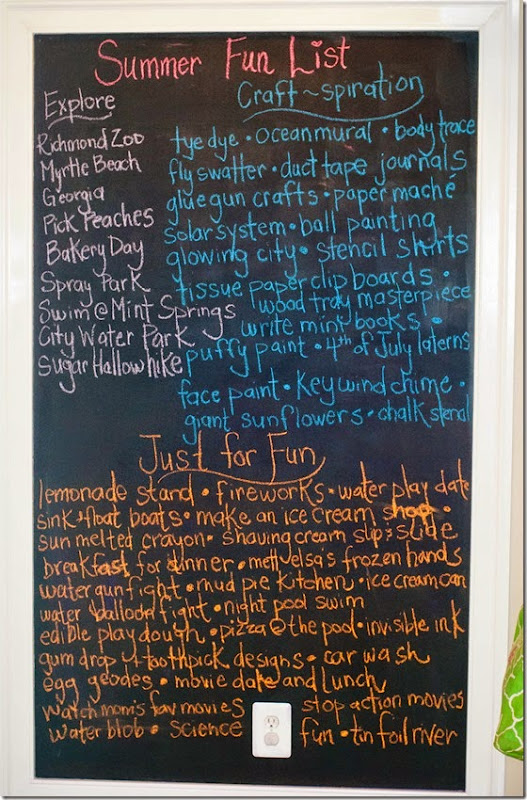 Summer Fun List
Explore
Richmond Zoo
Myrtle Beach
Georgia
Pick Peaches
Bakery Day
Spray Park
Swim @ Mint Springs
City Water Park
Sugar Hallow hike
Craft~spiration
tye dye • ocean mural • body trace
fly swatter • duct tape journals
glue gun crafts • paper maché
solar system • ball painting
glowing city • stencil shirts
tissue paper clip boards •
wood tray masterpiece
write mint books •
puffy paint • 4th of July laterns
face paint • Key wind chime •
giant sunflowers • chalk stencil
Just for Fun
lemonade stand • fireworks • water play date
sink & float boats • make an ice cream shop •
sun melted crayon • shaving cream slip & slide
breakfast for dinner • melt elsa's frozen hands
water gun fight • mud pie kitchen • ice cream can
water balloon fight • night pool swim
edible play dough • pizza @ the pool • invisible ink
gum drop & toothpick designs • car wash
egg geodes • movie date and lunch
watch mom's fav movies stop action movies
water blob • science fun • tin foil river